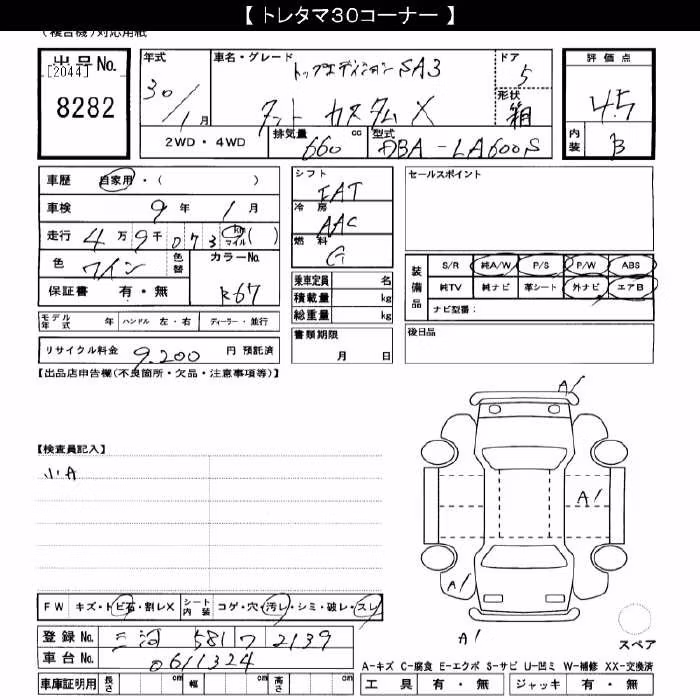 【 トレタマ30コーナー 】
(複合機)対応用紙
出品No.
[2044]
8282
年式
30/1月
車名・グレード
トップエディションSA3
タント カスタムX
ドア
5
形状
箱
評価点
4.5
内装
B
2WD・4WD
排気量
660 cc
型式
DBA-LA600S
車歴 自家用・( )
車検 9年 1月
走行 4万9千073 km マイル( )
色 ワイン 色替 カラーNo. R67
保証書 有・無
モデル年式 年 ハンドル 左・右 ディーラー・並行
リサイクル料金 9,200 円 預託済
シフト
FAT
冷房
AAC
燃料
G
乗車定員 名
積載量 kg
総重量 kg
書類期限
月 日
セールスポイント
装備品
S/R 純A/W P/S P/W ABS
純TV 純ナビ 革シート 外ナビ エアB
ナビ型番:
後日品
【出品店申告欄(不良箇所・欠品・注意事項等)】
【検査員記入】
小A
A1
A1
A1
A1
FW キズ・トビ石・割レX シート内装 コゲ・穴・汚レ・シミ・破レ・スレ
登録No. 三河 581 ワ 2139
車台No. 0611324
車庫証明用 長さ cm 幅 cm 高さ cm
スペア
A-キズ C-腐食 E-エクボ S-サビ U-凹ミ W-補修 XX-交換済
工具 有・無 ジャッキ 有・無